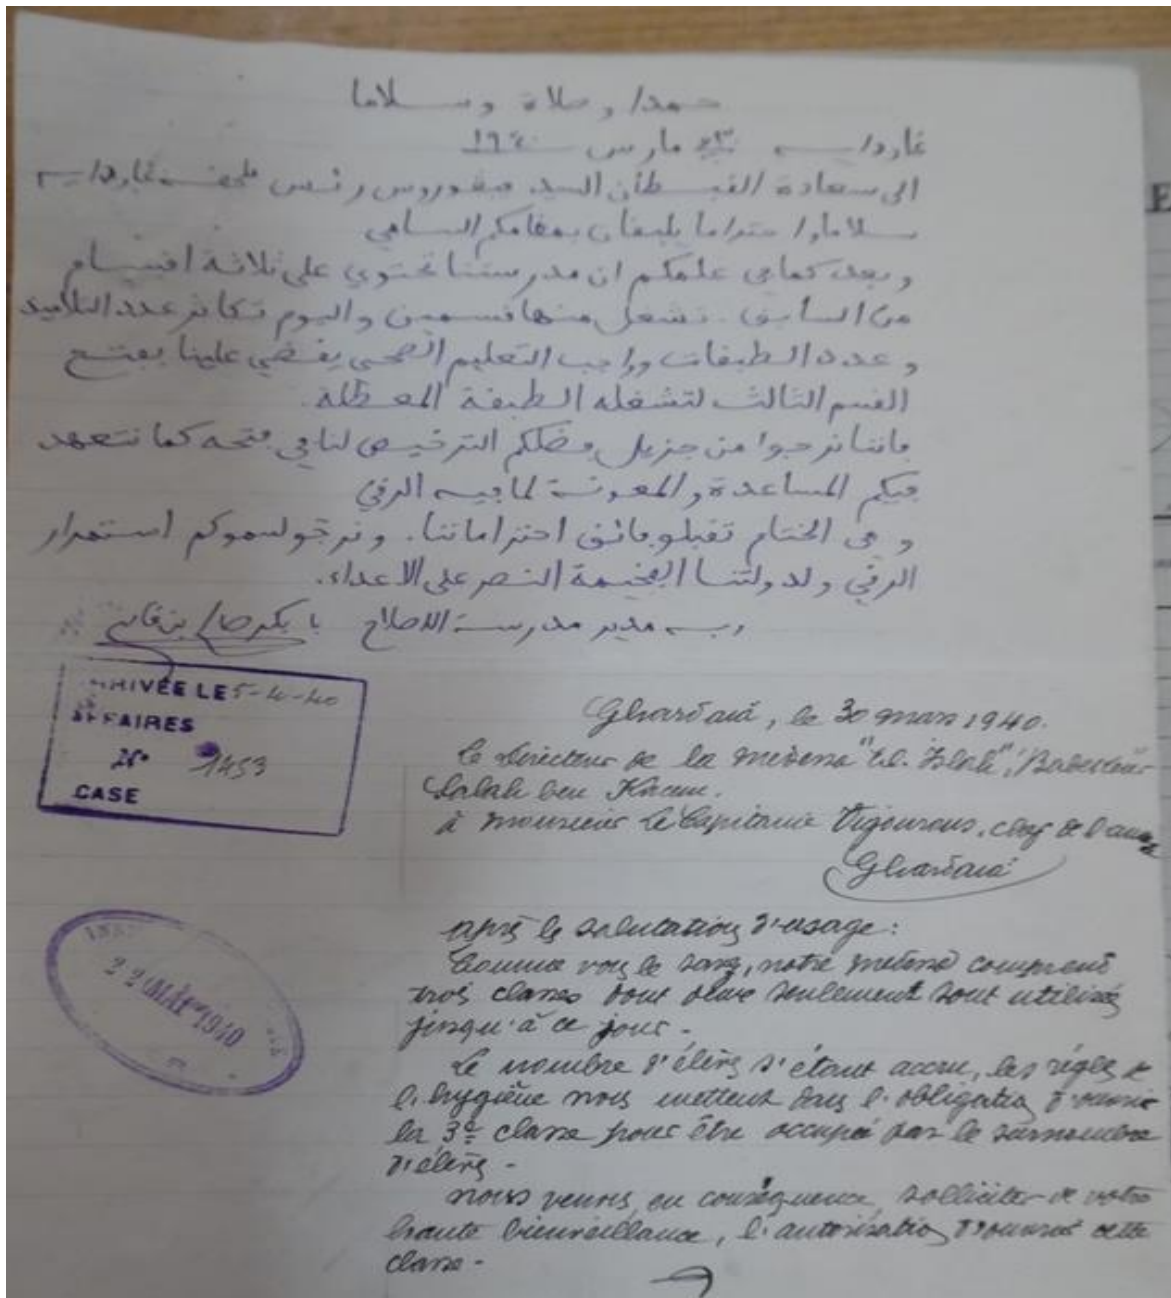 حمدا وصلاة وسلاما
غارداية 30 مارس 1940
الى سعادة القبطان السيد فيقوروس رئس ملحقة غارداية
سلاما واحتراما يليقان بمقامكم السامي
وبعد كما في علمكم ان مدرستنا تحتوي على ثلاثة اقسام
من السابق. نشغل منها قسمين واليوم تكاثر عدد التلاميذ
وعدد الطبقات وواجب التعليم الصحي يقضي علينا بفتح
القسم الثالث لتشغله الطبقة المعطلة.
فاننا نرجوا من جزيل فضلكم الترخيص لنا في فتحه كما نتعهد
فيكم المساعدة والمعونة لما فيه الرقي
وفي الختام تقبلو فائق احتراماتنا. ونرجو لسموكم استمرار
الرقي ولدولتنا الفخيمة النصر على الاعداء.
مدير مدرسة الاصلاح
ARRIVÉE LE 5-4-40
AFFAIRES
N° 1453
CASE
Ghardaïa, le 30 mars 1940.
Le Directeur de la médersa "El Islah",
Salah ben Kacem.
à Monsieur le Capitaine Vigourous, chef de l'annexe
Ghardaïa
après les salutations d'usage:
Comme vous le savez, notre médersa comprend
trois classes dont deux seulement sont utilisées
jusqu'à ce jour.
Le nombre d'élèves s'étant accru, les règles de
l'hygiène nous mettent dans l'obligation d'ouvrir
la 3e classe pour être occupée par le surnombre
d'élèves.
Nous venons, en conséquence, solliciter de votre
haute bienveillance, l'autorisation d'ouvrir cette
classe.
1940